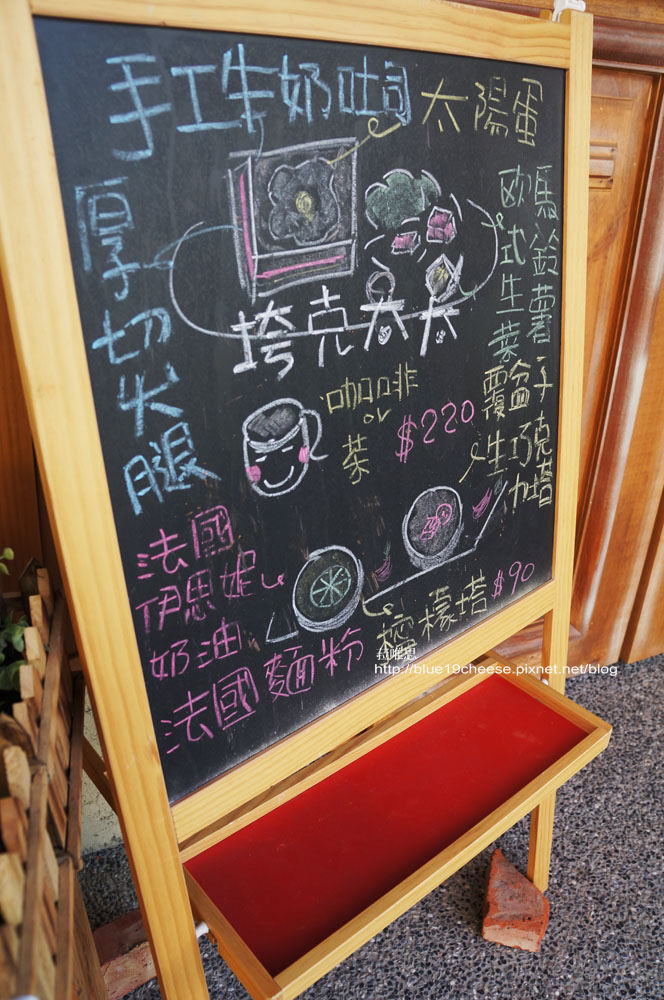 手工牛奶吐司 太陽蛋
厚切火腿
歐式生菜
馬鈴薯
垮克太太
咖啡
or
茶
$220
覆盆子
生巧克力塔
法國
伊思妮
奶油
法國麵粉
檸檬塔 $90
http://blue19cheese.pixnet.net/blog